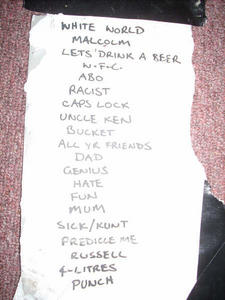 WHITE WORLD
MALCOLM
LETS' DRINK A BEER
W.F.C.
ABO
RACIST
CAPS LOCK
UNCLE KEN
BUCKET
ALL YR FRIENDS
DAD
GENIUS
HATE
FUN
MUM
SICK/KUNT
PREDICCE ME
RUSSELL
4-LITRES
PUNCH